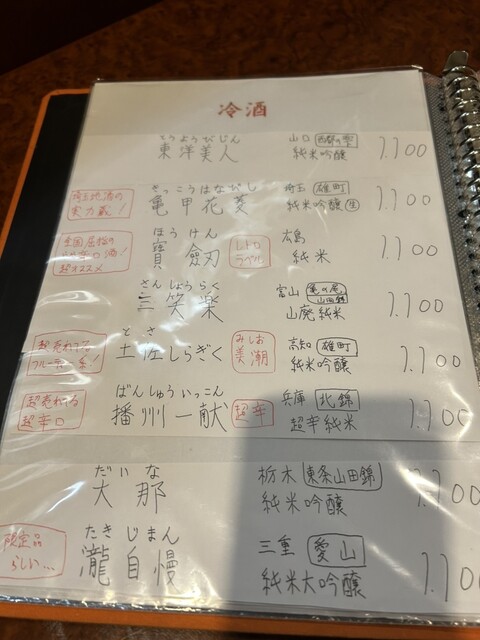 冷酒
とうようびじん
東洋美人
山口 西都の雫
純米吟醸
1.100
埼玉地酒の
実力蔵!
きっこうはなびし
亀甲花菱
埼玉 雄町
純米吟醸 生
1.100
全国屈指の
超オススメ
ほうけん
寶剱
レトロ
ラベル
広島
純米
1.100
さんしょうらく
三笑楽
富山 亀の尾
山田錦
山廃純米
1.100
超売れてる
フルーティー生!
とさ
土佐しらぎく
みしお
美潮
高知 雄町
純米吟醸
1.100
超売れてる
超辛口
ばんしゅういっこん
播州一献
超辛
兵庫 北錦
超辛純米
1.100
だいな
大那
栃木 東条山田錦
純米吟醸
1.100
限定品
らしい…
たきじまん
瀧自慢
三重 愛山
純米大吟醸
1.100